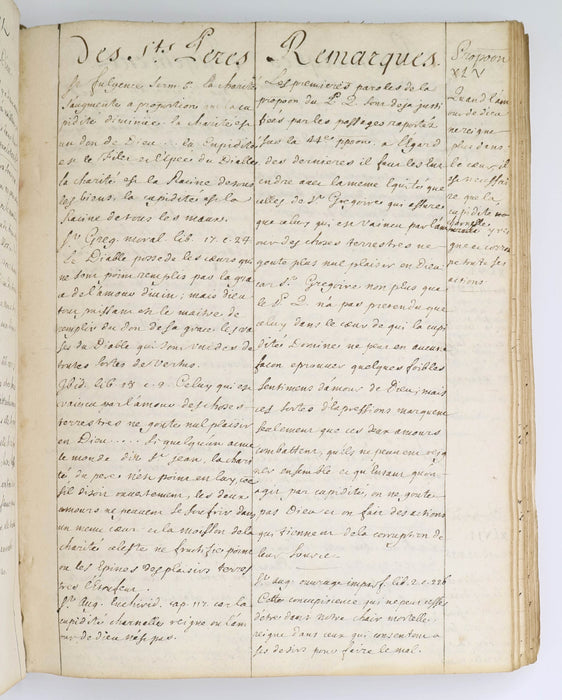 Des Sts Peres
St fulgence serm. 5. la charité
s'augmente a proportion que la cu
pidité diminüe la charité est
un don de Dieu . la Cupidité
est le Filet et l'Epée du Diable
la charité est la Racine de tous
les biens, la cupidité est la
Racine de tous les maux.
St. Greg. moral. lib. 17. c. 24.
Le Diable possede les cœurs qui
ne sont point remplis par la gra
ce de l'amour divin ; mais dieu
tout puissant est le maitre de
remplir du don de sa grace les va
ses du Diable qui sont vuides de
toutes sortes de vertus.
Ibid. lib. 18 c. 9. Celuy qui est
vaincu par l'amour des choses
terrestres ne goute nul plaisir
en Dieu . . . . Si quelqu'un aime
le monde dit St jean, la chari
té du pere n'est point en luy, c'est co
s'il disoit ouvertement, les deux
amours ne peuvent se soufrir dans
un meme cœur et la moisson de la
charité celeste ne fructifie point
ou les Epines des plaisirs terres
tres l'étoufent.
St. Aug. Enchirid. cap. 117. car la
cupidité charnelle reigne ou l'am
our de dieu n'est pas.
Remarques.
Les premieres paroles de la
propoon du P. Q. sont deja justi
fiées par les passages raportés
sur la 44e ppoon. a l'Egard
des dernieres il faut les en
tendre avec la meme equité que
celles de St Gregoire qui assure
que celuy qui est vaincu par l'am
our des choses terrestres ne
goute plus nul plaisir en Dieu
car St. Gregoire non plus que
le P. Q. n'a pas pretendu que
celuy dans le cœur de qui la cupi
dité Domine ne peut en aucune
facon eprouver quelques foibles
sentimens d'amour de Dieu ; mais
ces sortes d'expressions marquent
seulement que ces deux amours
combattent, qu'ils ne peuvent reig
ner ensemble et qu'Entant qu'on
agit par cupidité, on ne goute
pas Dieu et on fait des actions
qui tiennent de la corruption de
leur source.
St. aug. ouvrage imparf. lib. 2. c. 226
Cette concupiscence qui ne peut cesser
d'etre dans notre chair mortelle
reigne dans ceux qui consentent a
ses desirs pour faire le mal.
Propoon
XLV
Quand l'am
our de dieu
ne reigne
plus dans
le cœur il
est necessai
re que la
cupidité
charnelle y reig
ne et corrom
pe toutes ses
actions